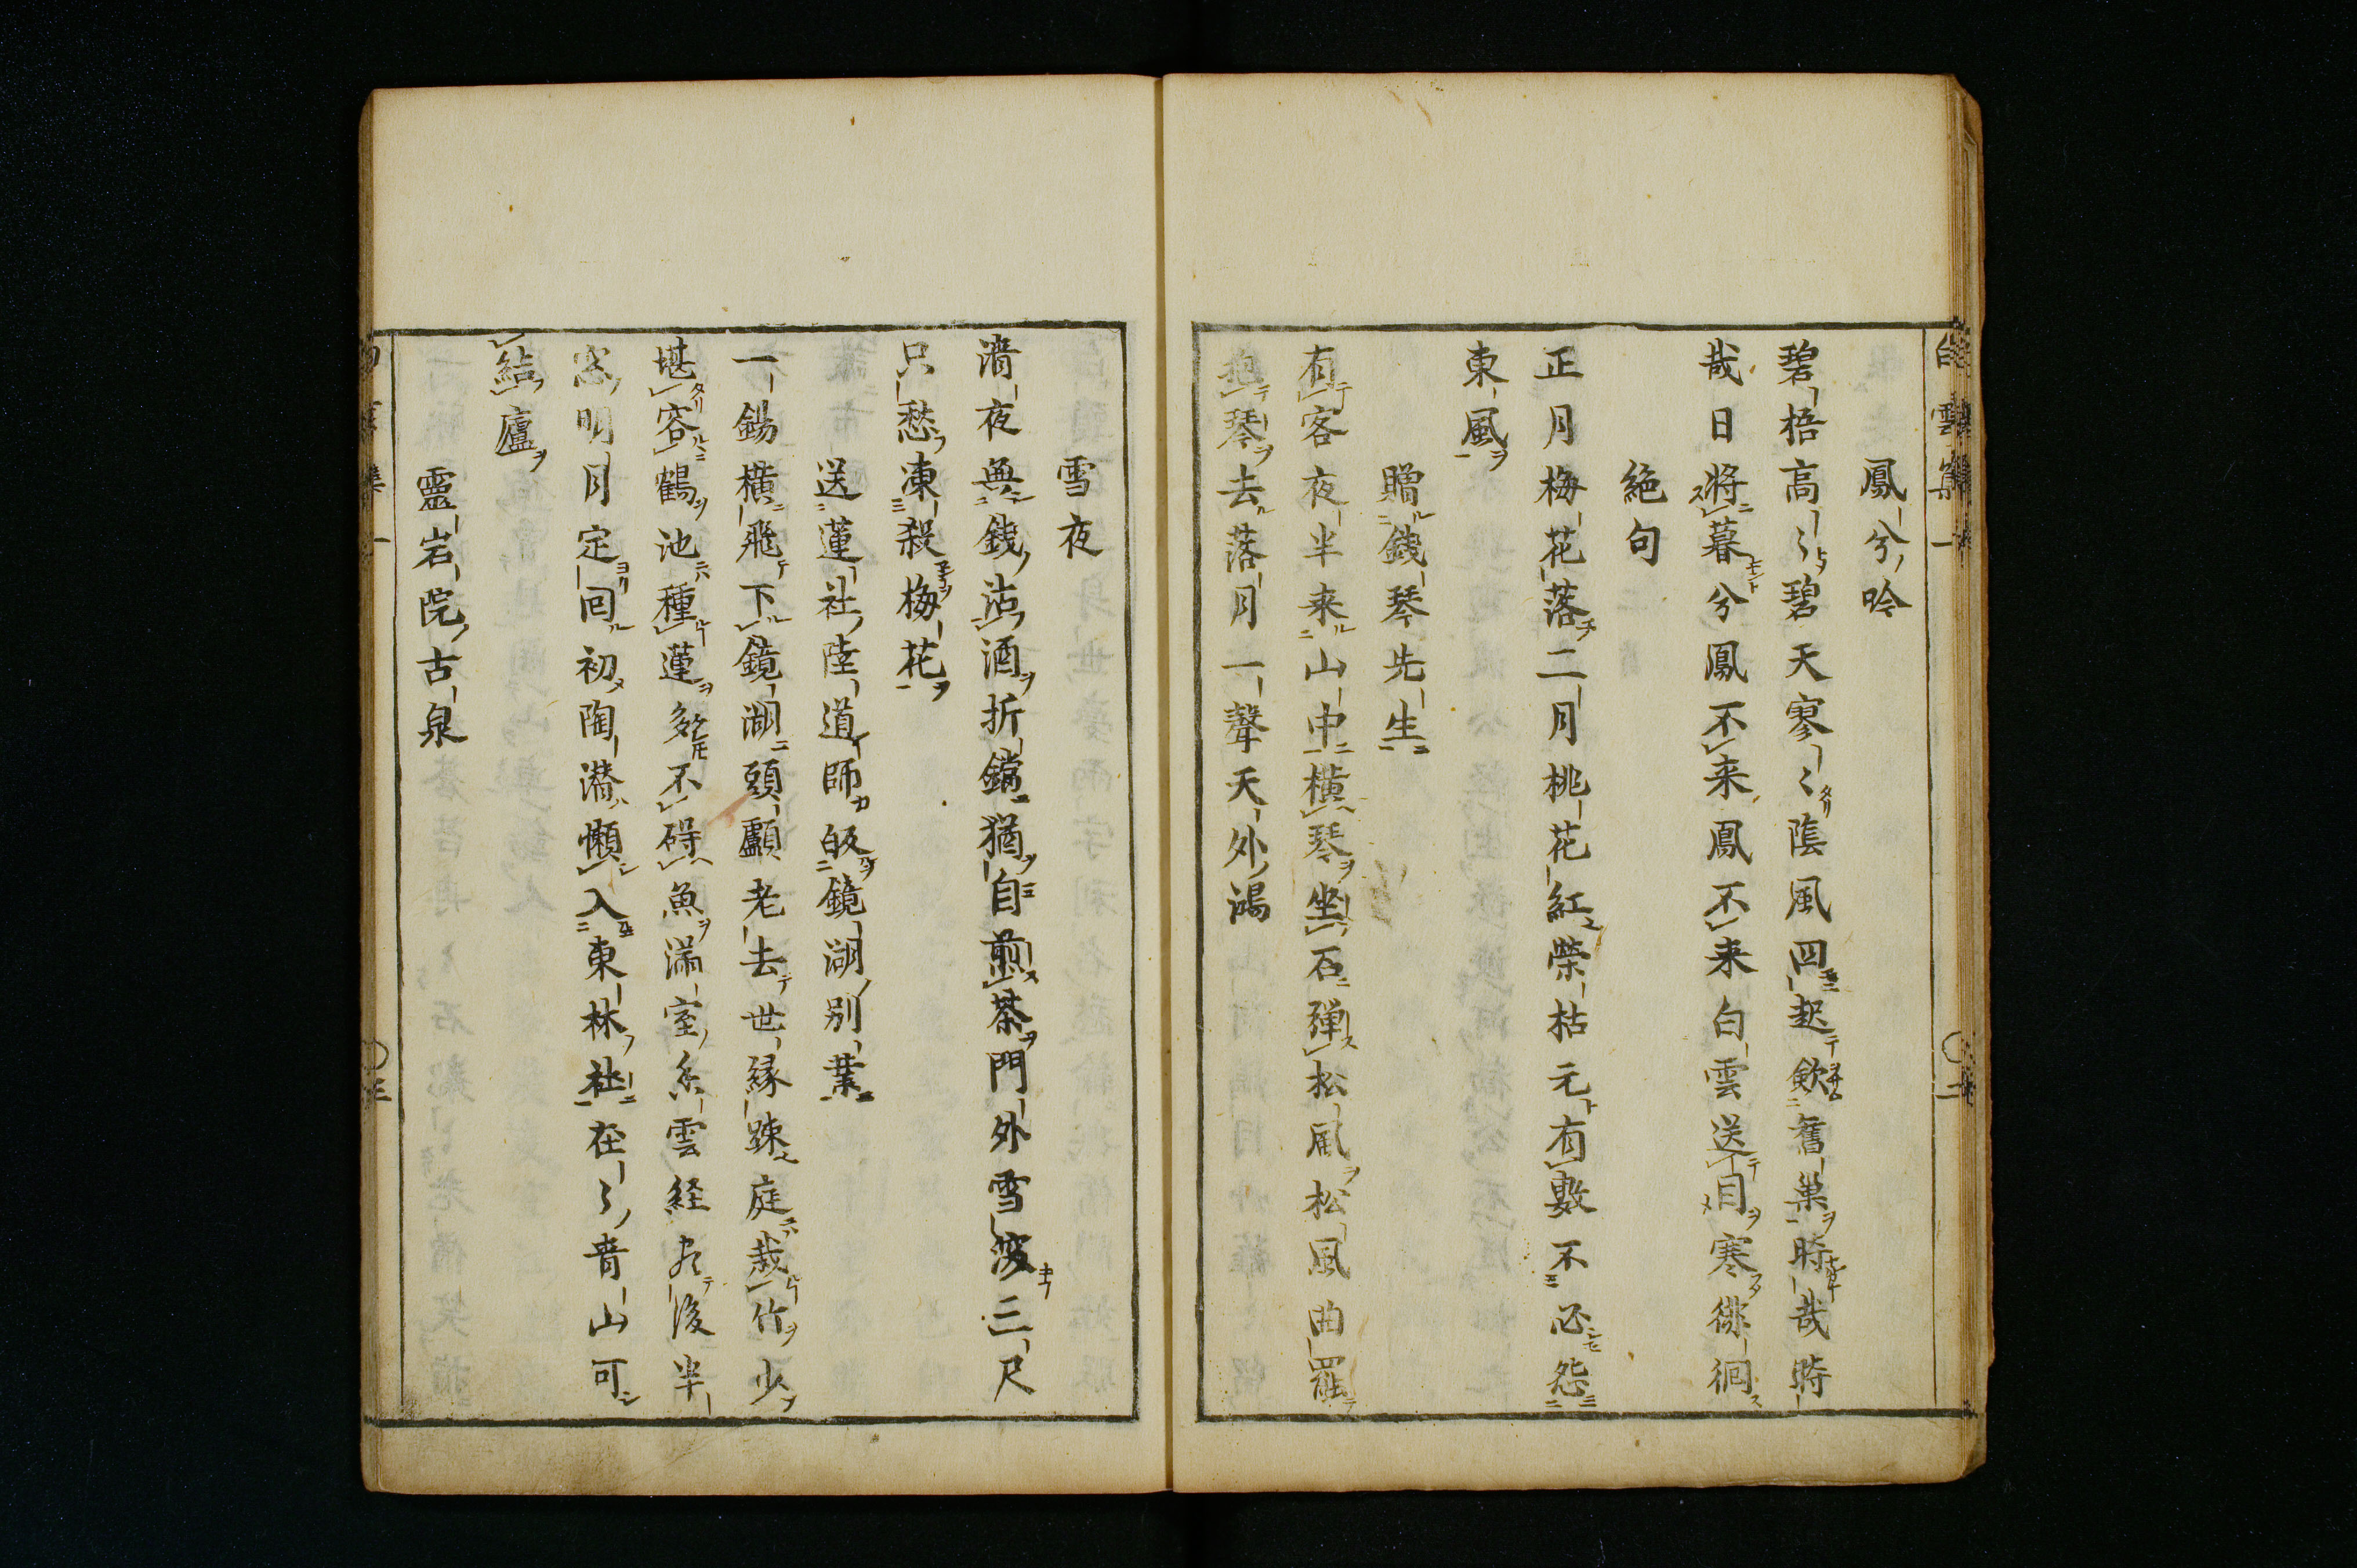 白雲集一
鳳兮吟
碧梧高〻碧天寥〻陰風四起欽舊巢時哉時
哉日將暮兮鳳不来鳳不来白雲送目寒徘徊
絶句
正月梅花落二月桃花紅榮枯元有數不必怨
東風
贈錢琴先生
有客夜半来山中橫琴坐石弾松風松風曲罷
抱琴去落月一聲天外鴻
雪夜
清夜無錢沽酒折鐺猶自煎茶門外雪深三尺
只愁凍殺梅花
送蓮社陸道師皈鏡湖別業
一錫橫飛下鏡湖頭顱老去世縁踈庭栽竹少
堪容鶴池種蓮多不碍魚滿室糸雲経木後半
窓明月定回初陶潜懶入東林社在〻青山可
結廬
靈岩院古泉